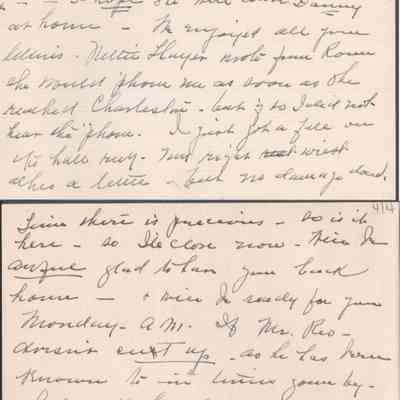 at home - We enjoyed all your
letters. Nettie Thayer wrote from Rome
she would 'phone me as soon as she
reached Charleston - but if so I did not
hear the 'phone. I just got a fall on
the hall rug - my right wrist
aches a little - but no damage done.
4/4
Time there is precious - so is it
here - so I'll close now - Will be
awful glad to have you back
home - & will be ready for you
Monday - A.M. If Mr.
up - as he has been
known to in times gone by -